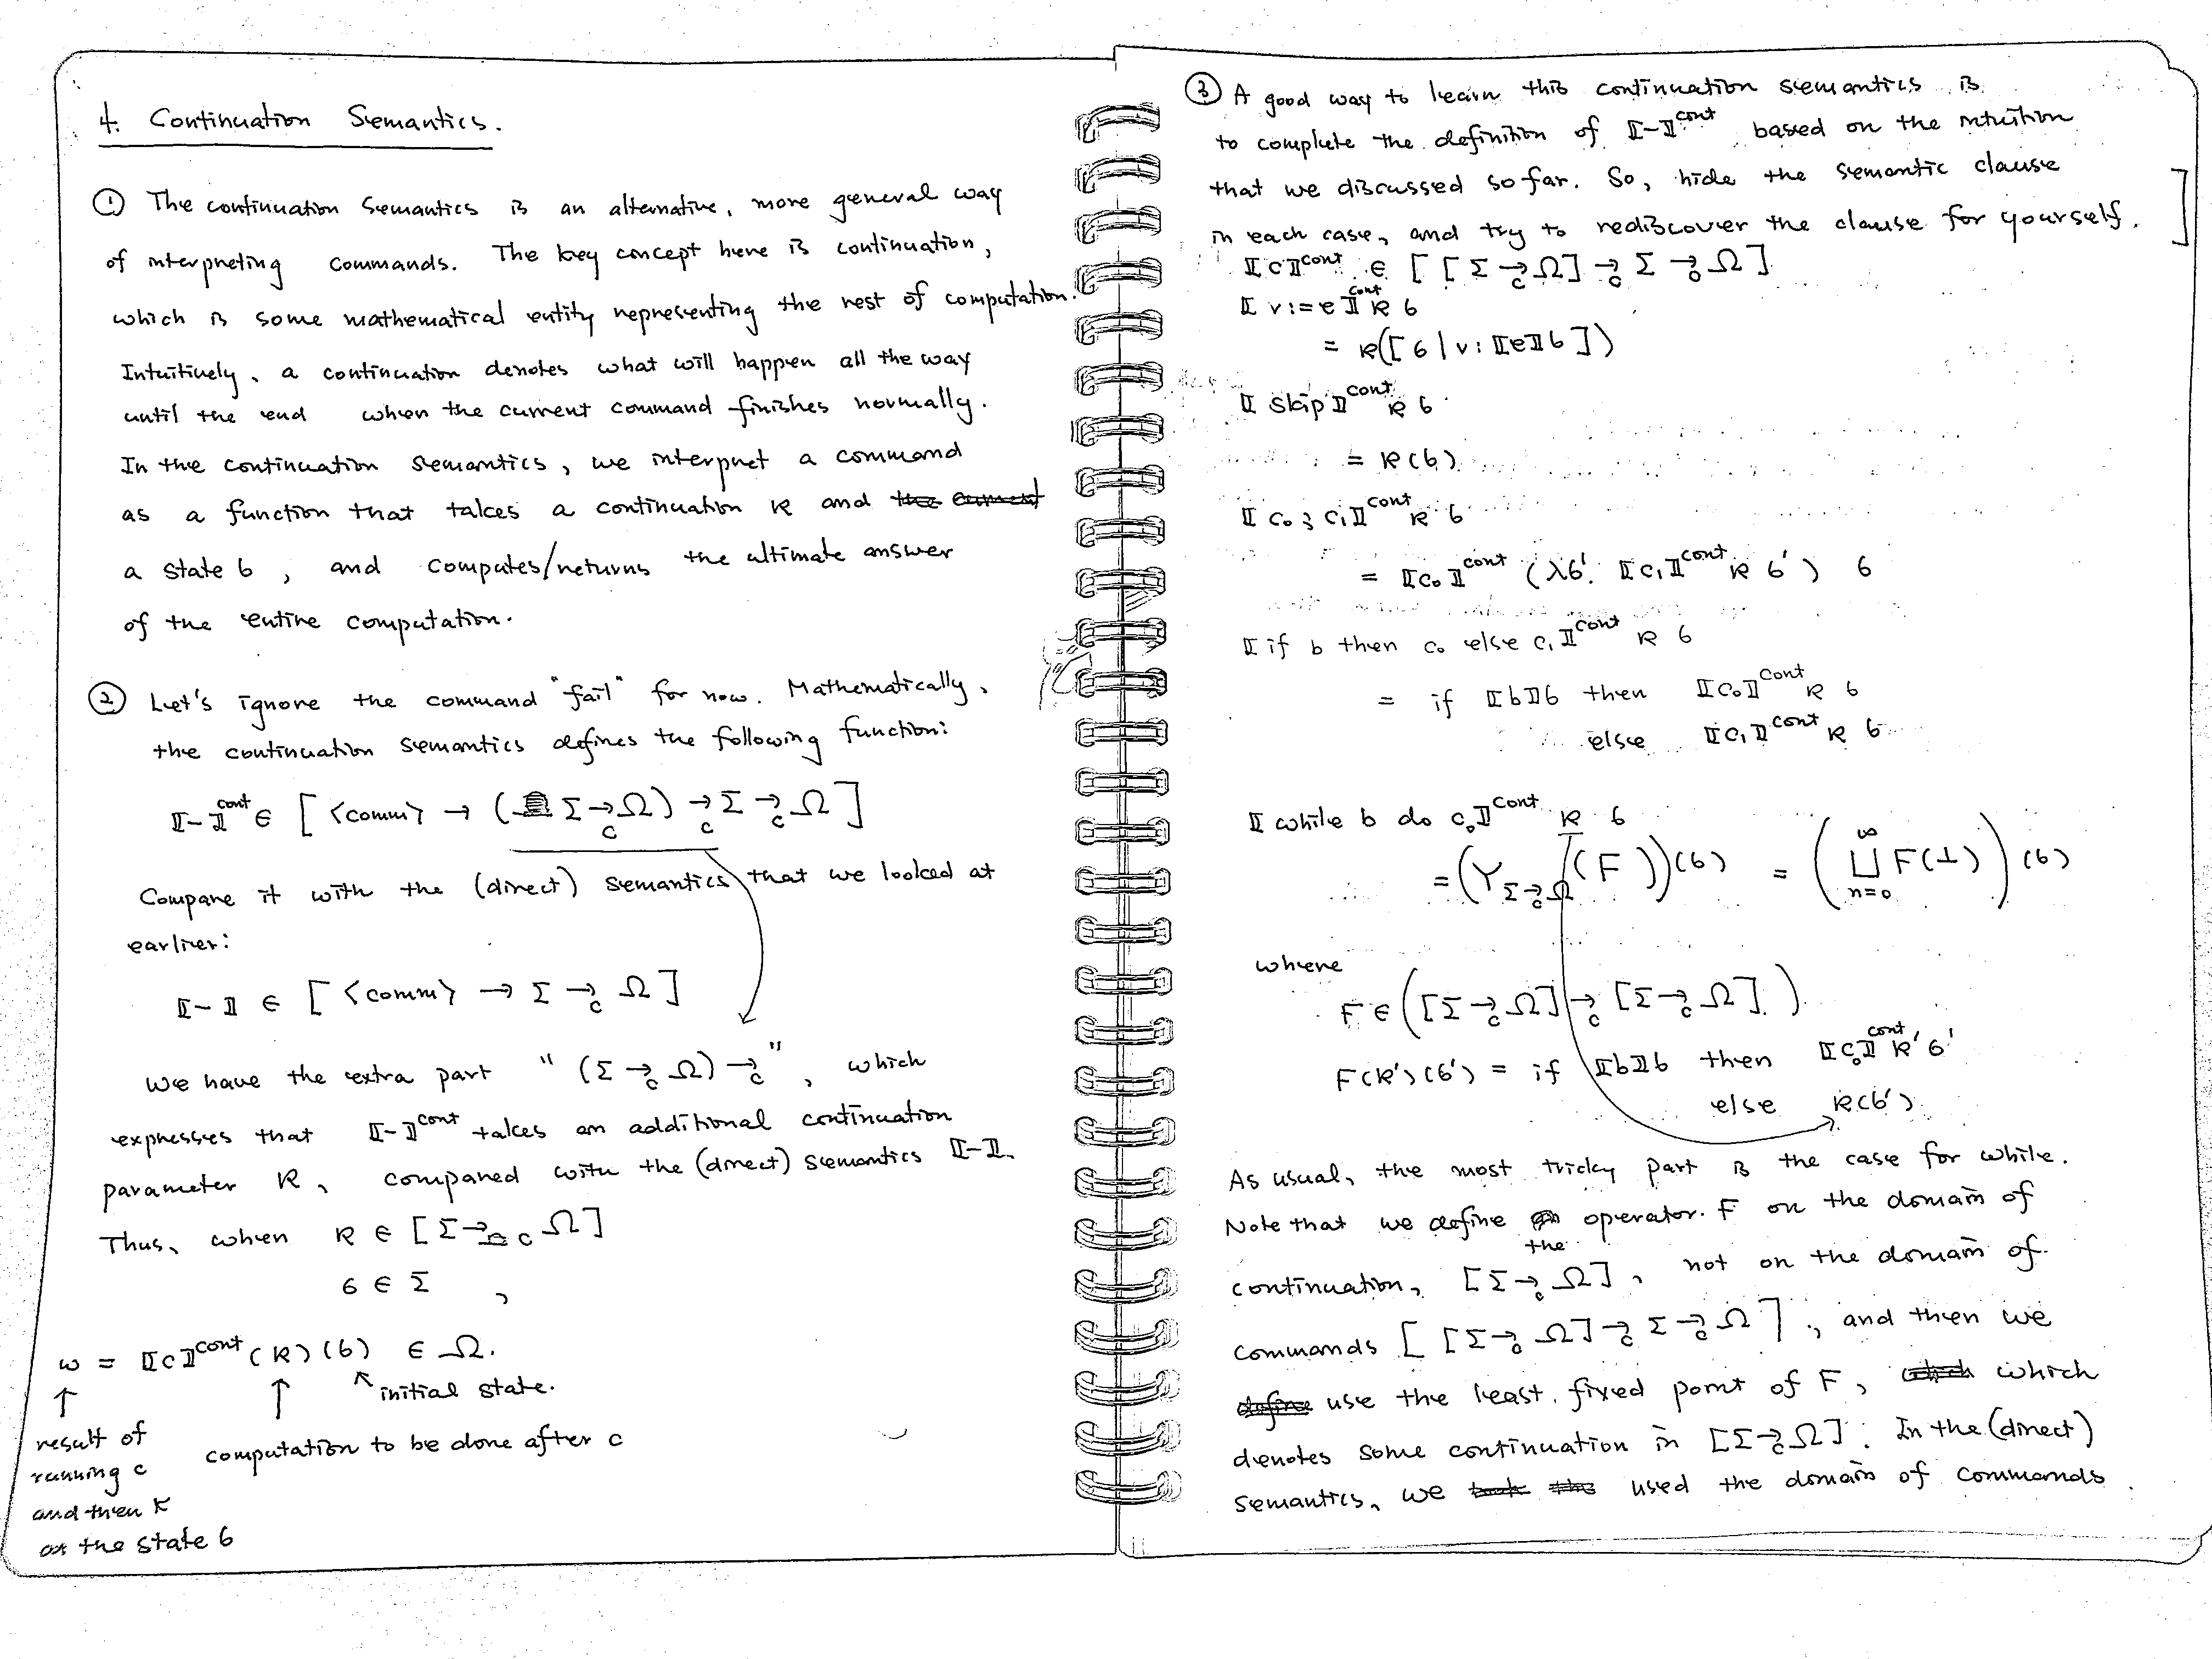 4. Continuation Semantics.
① The continuation semantics is an alternative, more general way
of interpreting commands. The key concept here is continuation,
which is some mathematical entity representing the rest of computation.
Intuitively, a continuation denotes what will happen all the way
until the end when the current command finishes normally.
In the continuation semantics, we interpret a command
as a function that takes a continuation κ and the current
a state σ, and computes/returns the ultimate answer
of the entire computation.
② Let's ignore the command "fail" for now. Mathematically,
the continuation semantics defines the following function:
⟦-⟧^cont ∈ [ <comm> → (Σ →_c Ω) →_c Σ →_c Ω ]
Compare it with the (direct) semantics that we looked at
earlier:
⟦-⟧ ∈ [ <comm> → Σ →_c Ω ]
We have the extra part "(Σ →_c Ω) →_c", which
expresses that ⟦-⟧^cont takes an additional continuation
parameter κ, compared with the (direct) semantics ⟦-⟧.
Thus, when κ ∈ [Σ →_c Ω]
σ ∈ Σ ,
ω = ⟦c⟧^cont (κ)(σ) ∈ Ω.
↑ ↑ ↖ initial state.
result of
running c computation to be done after c
and then κ
on the state σ
③ A good way to learn this continuation semantics is
to complete the definition of ⟦-⟧^cont based on the intuition
that we discussed so far. So, hide the semantic clause
in each case, and try to rediscover the clause for yourself.
⟦c⟧^cont ∈ [ [Σ →_c Ω] →_c Σ →_c Ω ]
⟦v:=e⟧^cont κ σ
= κ([σ | v: ⟦e⟧σ])
⟦skip⟧^cont κ σ
= κ(σ)
⟦c₀ ; c₁⟧^cont κ σ
= ⟦c₀⟧^cont (λσ'. ⟦c₁⟧^cont κ σ') σ
⟦if b then c₀ else c₁⟧^cont κ σ
= if ⟦b⟧σ then ⟦c₀⟧^cont κ σ
else ⟦c₁⟧^cont κ σ
⟦while b do c₀⟧^cont κ σ
= (Y_{Σ →_c Ω} (F))(σ) = (⨆_{n=0}^∞ F(⊥))(σ)
where
F ∈ ([Σ →_c Ω] →_c [Σ →_c Ω])
F(κ')(σ') = if ⟦b⟧σ then ⟦c₀⟧^cont κ' σ'
else κ(σ')
As usual, the most tricky part is the case for while.
Note that we define an operator F on the domain of
continuation, the [Σ →_c Ω], not on the domain of
commands [ [Σ →_c Ω] →_c Σ →_c Ω ], and then we
define use the least fixed point of F, which which
denotes some continuation in [Σ →_c Ω]. In the (direct)
semantics, we took the used the domain of commands